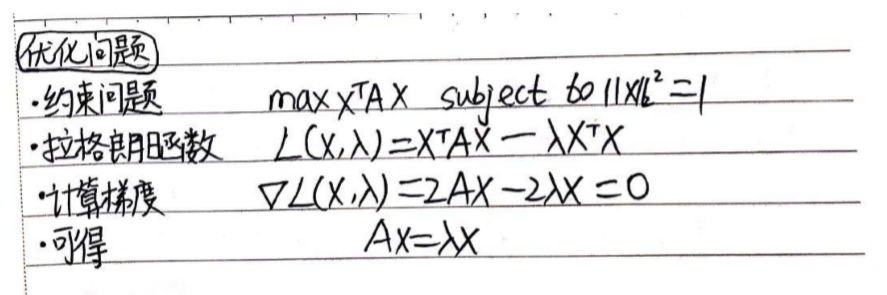 优化问题
·约束问题 max xᵀAx subject to ||x||₂² = 1
·拉格朗日函数 L(x,λ) = xᵀAx − λxᵀx
·计算梯度 ∇L(x,λ) = 2Ax − 2λx = 0
·可得 Ax = λx